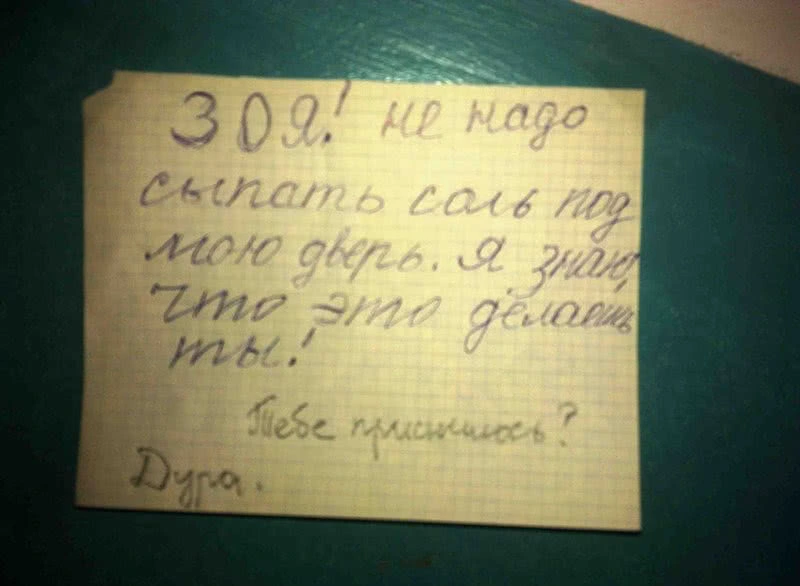 ЗОЯ! не надо
сыпать соль под
мою дверь. Я знаю,
что это делаешь
ты!
Тебе приснилось?
Дура.